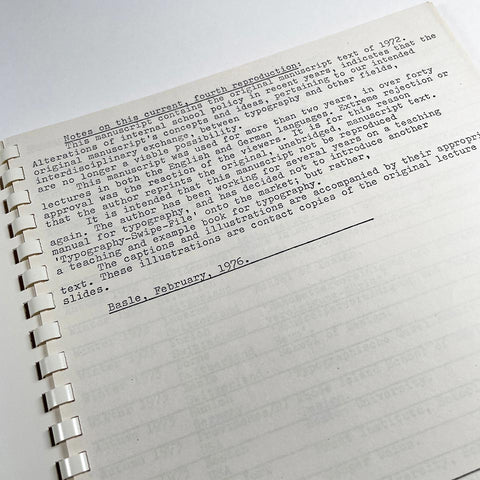 Notes on this current, fourth reproduction:
This manuscript contains the original manuscript text of 1972.
Alterations of internal school policy in recent years, indicates that the
original manuscript's concepts and ideas, pertaining to our intended
interdisciplinary exchange between typography and other fields,
are no longer a viable possibility.
This manuscript was used for more than two years, in over forty
lectures in both the English and German languages. Extreme rejection or
approval was the reaction of the viewers. It is for this reason
that the author reprints the original, unabridged, manuscript text.
It is intended that this manuscript not be reproduced
again. The author has been working for several years on a teaching
manual for typography, and has decided not to introduce another
'Typography-Swipe-File', onto the market; but rather,
a teaching and example book for typography.
The captions and illustrations are accompanied by their appropri
text. These illustrations are contact copies of the original lecture
slides.
Basle, February, 1976.